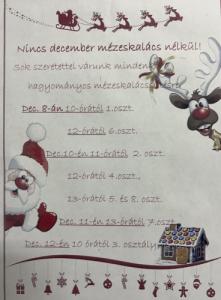 Nincs december mézeskalács nélkül!
Sok szeretettel várunk minden
hagyományos mézeskalács
Dec. 8-án 10-órától 1.oszt.
12-órától 6.oszt.
Dec.10-én 11-órától 2. oszt.
12-órától 4.oszt.
13-órától 5. és 8. oszt.
Dec. 11-én 13-órától 7.oszt.
Dec. 12-én 10 órától 3. osztály